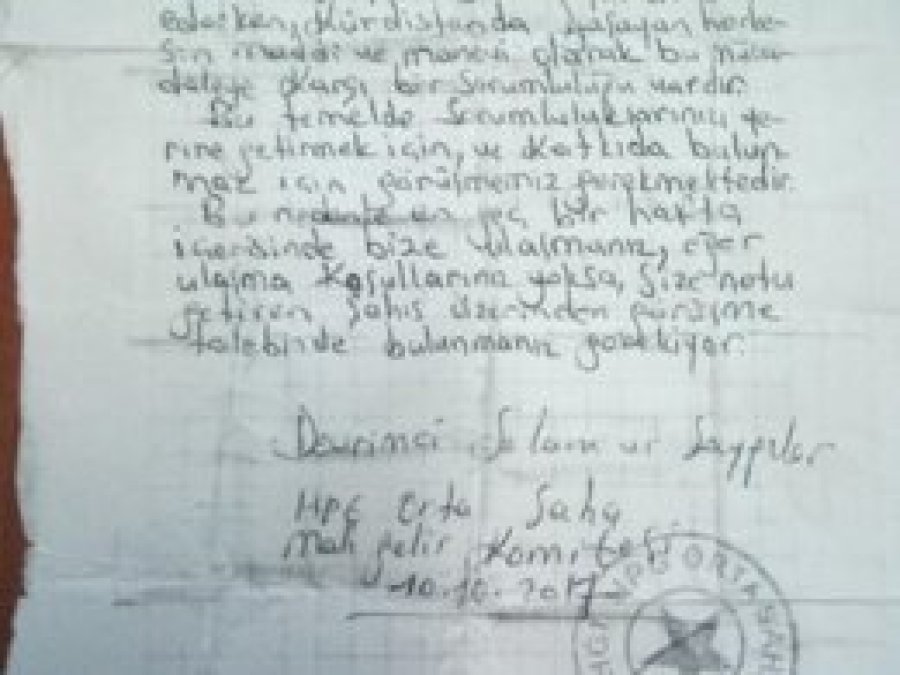 ederken, Kürdistanda yaşayan herke-
sin maddi ve manevi olarak bu müca-
deleye karşı bir sorumluluğu vardır.
Bu temelde sorumluluklarınızı ye-
rine getirmek için, ve katkıda bulun
mak için görüşmemiz gerekmektedir.
Bu nedenle en geç bir hafta
içerisinde bize ulaşmanız, eğer
ulaşma koşullarınız yoksa, size notu
getiren şahıs üzerinden görüşme
talebinde bulunmanız gerekiyor.
Devrimci Selam ve Saygılar
HPG Orta Saha
Mali gelir Komitesi
10.10.2017
HPG ORTA SAH